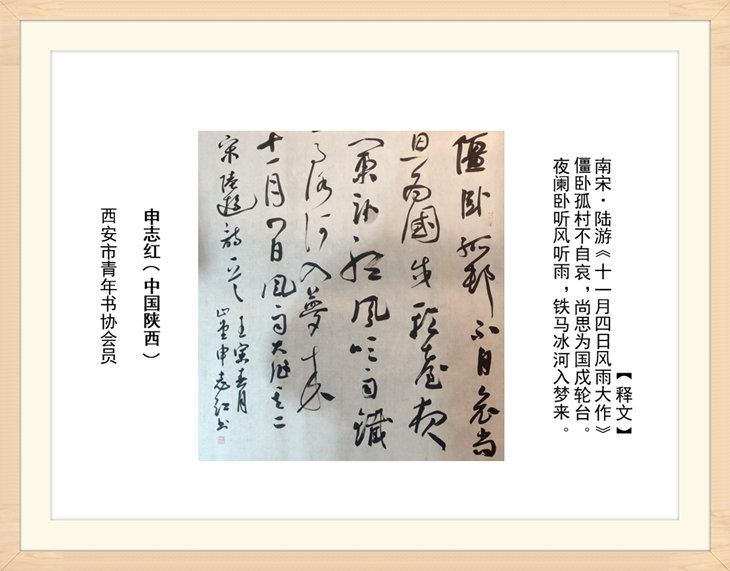 【释文】
南宋·陆游《十一月四日风雨大作》
僵卧孤村不自哀，尚思为国戍轮台。
夜阑卧听风听雨，铁马冰河入梦来。
僵卧孤邨不自哀尚
思为國戍轮臺夜
阑卧聽風吹雨鐵
马冰河入夢来
十一月四日風雨大作之二
宋陆游詩一首 壬寅春月
申志红书
申志红（中国陕西）
西安市青年书协会员